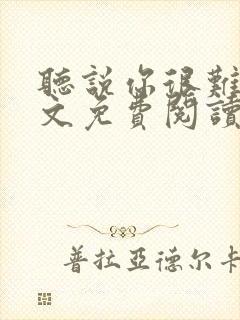 聽說你很難
文免費閱讀
普拉亞德尔卡